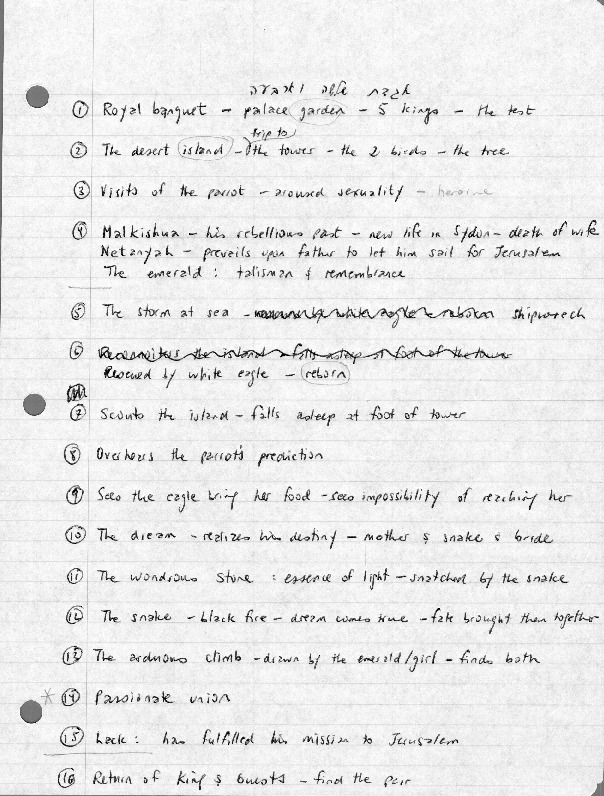 אגדת שלשה וארבעה
① Royal banquet – palace garden – 5 kings – the test
trip to
② The desert island – the tower – the 2 birds – the tree
③ Visits of the parrot – aroused sexuality – heroine
④ Malkishua – his rebellious past – new life in Sydon – death of wife
Netanyah – prevails upon father to let him sail for Jerusalem
The emerald : talisman & remembrance
⑤ The storm at sea – shipwreck
⑥ Reconnoiters the island – falls asleep at foot of the tower
Rescued by white eagle – reborn
⑦ Scouts the island – falls asleep at foot of tower
⑧ Overhears the parrot's prediction
⑨ Sees the eagle bring her food – sees impossibility of reaching her
⑩ The dream – realizes his destiny – mother & snake & bride
⑪ The wondrous stone : essence of light – snatched by the snake
⑫ The snake – black fire – dream comes true – fate brought them together
⑬ The arduous climb – drawn by the emerald/girl – finds both
* ⑭ Passionate union
⑮ Lack : has fulfilled his mission to Jerusalem
⑯ Return of King & Guests – find the pair